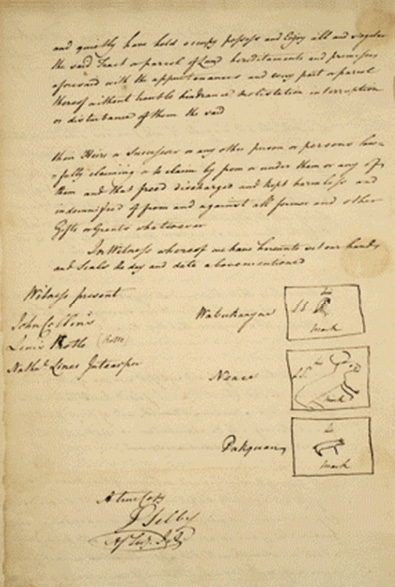 and quietly have hold occupy possess and Enjoy all and singular
the said Tract or parcel of Land hereditaments and premises
aforesaid with the appurtenances and every part or parcel
thereof without trouble hindrance molestation interruption
or disturbance of them the said
their Heirs or Successor or any other person or persons law
fully claiming or to claim by from or under them or any of
them and that freed discharged and kept harmless and
indemnified of from and against all former and other
Gifts or Grants whatsoever
In Witness whereof we have hereunto set our hands
and Seals the day and date abovementioned
Witness present
John Collins
Louis Kotte (Kotte)
Nathl. Lines Interpr
Wabukanyne
his
LS
mark
Neace
his
LS
mark
Pakquan
his
mark
A true Copy